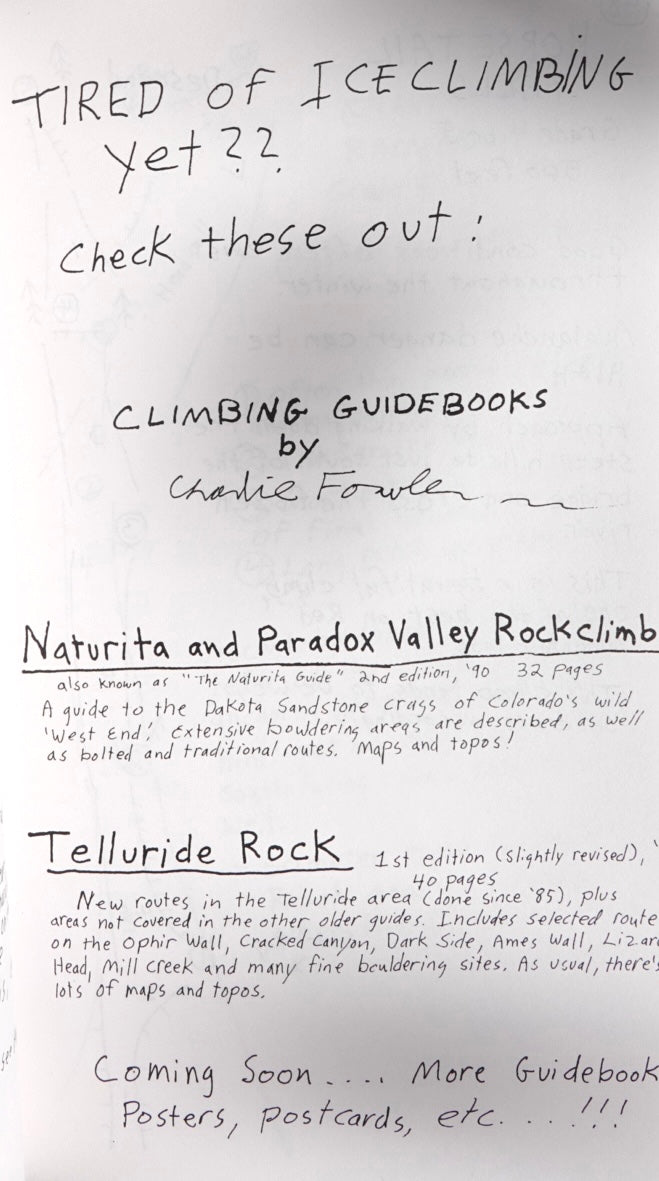 TIRED OF ICECLIMBING
yet??
Check these out!
CLIMBING GUIDEBOOKS
by
Charlie Fowler
Naturita and Paradox Valley Rockclimb
also known as "The Naturita Guide" 2nd edition, '90 32 pages
A guide to the Dakota Sandstone crags of Colorado's wild
'West End'. Extensive bouldering areas are described, as well
as bolted and traditional routes. Maps and topos!
Telluride Rock 1st edition (slightly revised), '
40 pages
New routes in the Telluride area (done since '85), plus
areas not covered in the other older guides. Includes selected route
on the Ophir Wall, Cracked Canyon, Dark Side, Ames Wall, Lizar
Head, Mill Creek and many fine bouldering sites. As usual, there's
lots of maps and topos.
Coming Soon.... More Guidebook
Posters, postcards, etc....!!!